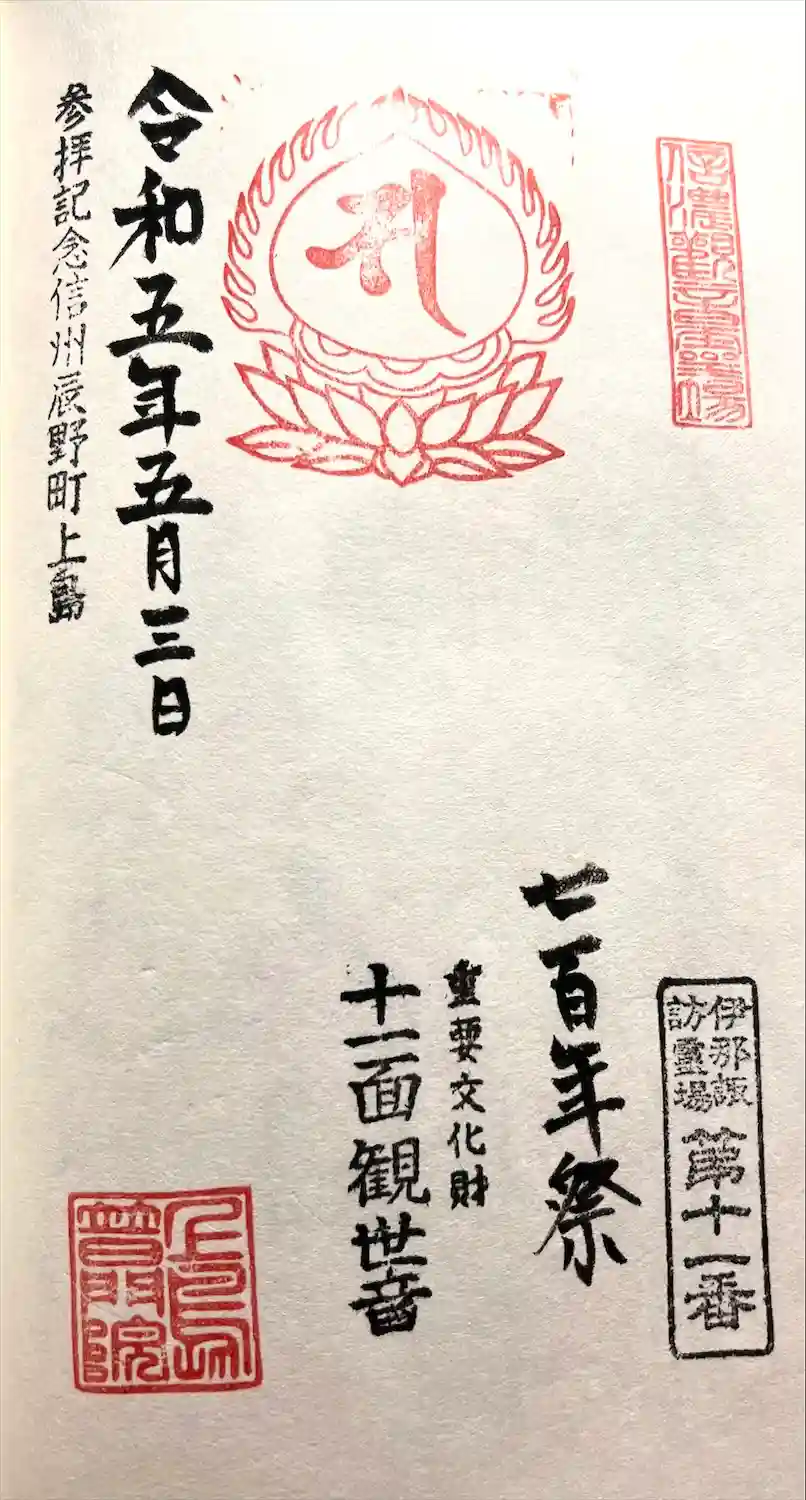 伊那諏
訪靈場
第十一番
七百年祭
重要文化財
十一面観世音
令和五年五月三日
参拝記念信州辰野町上島
上島
普門院